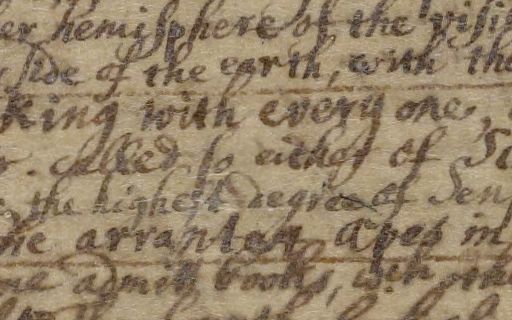 er hemisphere of the visi
side of the earth, with the
king with every one,
called so either of Sc
the highest degree of Sen
arranter Apes in
admitt books, wch